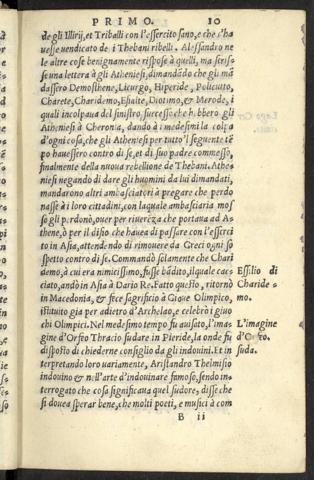 PRIMO. 10
de gli Illirij, et Triballi con l'essercito sano, e che s'ha
uesse uendicato de i Thebani ribelli. Alessandro ne
le altre cose benignamente rispose à quelli, ma scris-
se una lettera à gli Atheniesi, dimandādo che gli mā
dassero Demosthene, Licurgo, Hiperide, Policutto,
Charete, Charidemo, Efialte, Diotimo, & Merode, i
quali incolpaua del sinistro, successo che hebbero gli
Atheniesi à Cheronia, dando à i medesimi la colpa
d'ogni cosa, che gli Atheniesi per tutto'l seguente tē
po hauessero contro di se, et di suo padre commesso,
finalmente della nuoua rebellione de Thebani. Athe-
niesi negando di dare gli huomini da lui dimandati,
mandarono altri ambasciatori à pregare che perdo
nasse à i loro cittadini, con laquale ambasciaria mos
so gli perdonò, ouer per riuerēza che portaua ad A-
thene, ò per il disio che haueua di passare con l'esserci
to in Asia, attendendo di rimouere da Greci ogni so
spetto contro di se. Commandò solamente che Chari
demo, à cui era nimicissimo, fusse bādito, ilquale cac-
ciato, andò in Asia à Dario Re. Fatto questo, ritornò
in Macedonia, & fece sagrificio à Gioue Olimpico,
istituito gia per adietro d'Archelao, e celebrò i giuo
chi Olimpici. Nel medesimo tempo fu auisato, l'ima-
gine d'Orfeo Thracio sudare in Pieride, la onde fu
disposto di chiederne consiglio da gli indouini. Et in
terpretando loro uariamente, Aristandro Thelmisio
indouino & nell'arte d'indouinare famoso, sendo in-
terrogato che cosa significaua quel sudore, disse che
si doueua sperar bene, che molti poeti, e musici à com
B ii
Essilio di
Charide-
mo.
L'imagine
d'Orfeo.
suda.